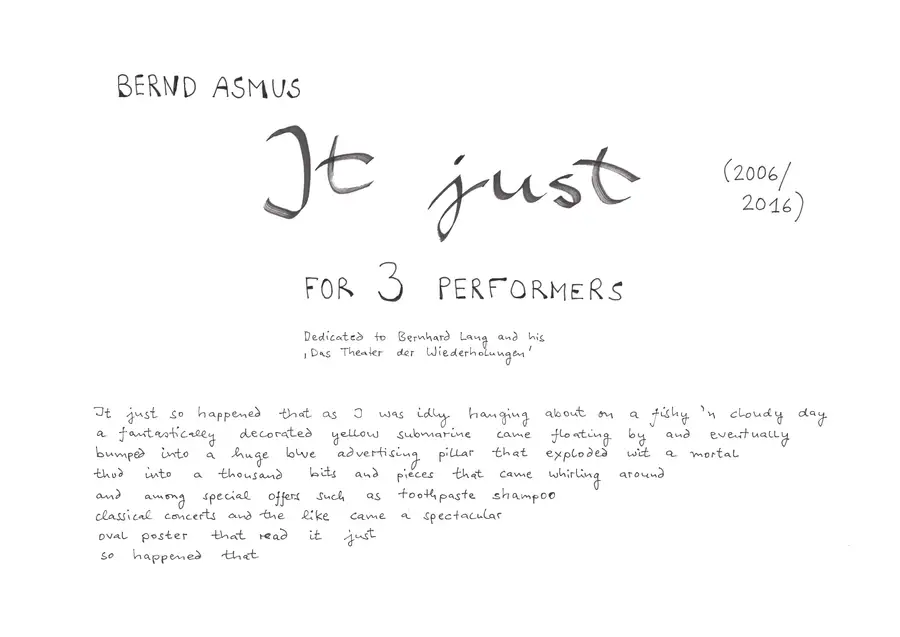 BERND ASMUS
It just
(2006/
2016)
FOR 3 PERFORMERS
Dedicated to Bernhard Lang and his
‚Das Theater der Wiederholungen'
It just so happened that as I was idly hanging about on a fishy 'n cloudy day
a fantastically decorated yellow submarine came floating by and eventually
bumped into a huge blue advertising pillar that exploded wit a mortal
thud into a thousand bits and pieces that came whirling around
and among special offers such as toothpaste shampoo
classical concerts and the like came a spectacular
oval poster that read it just
so happened that